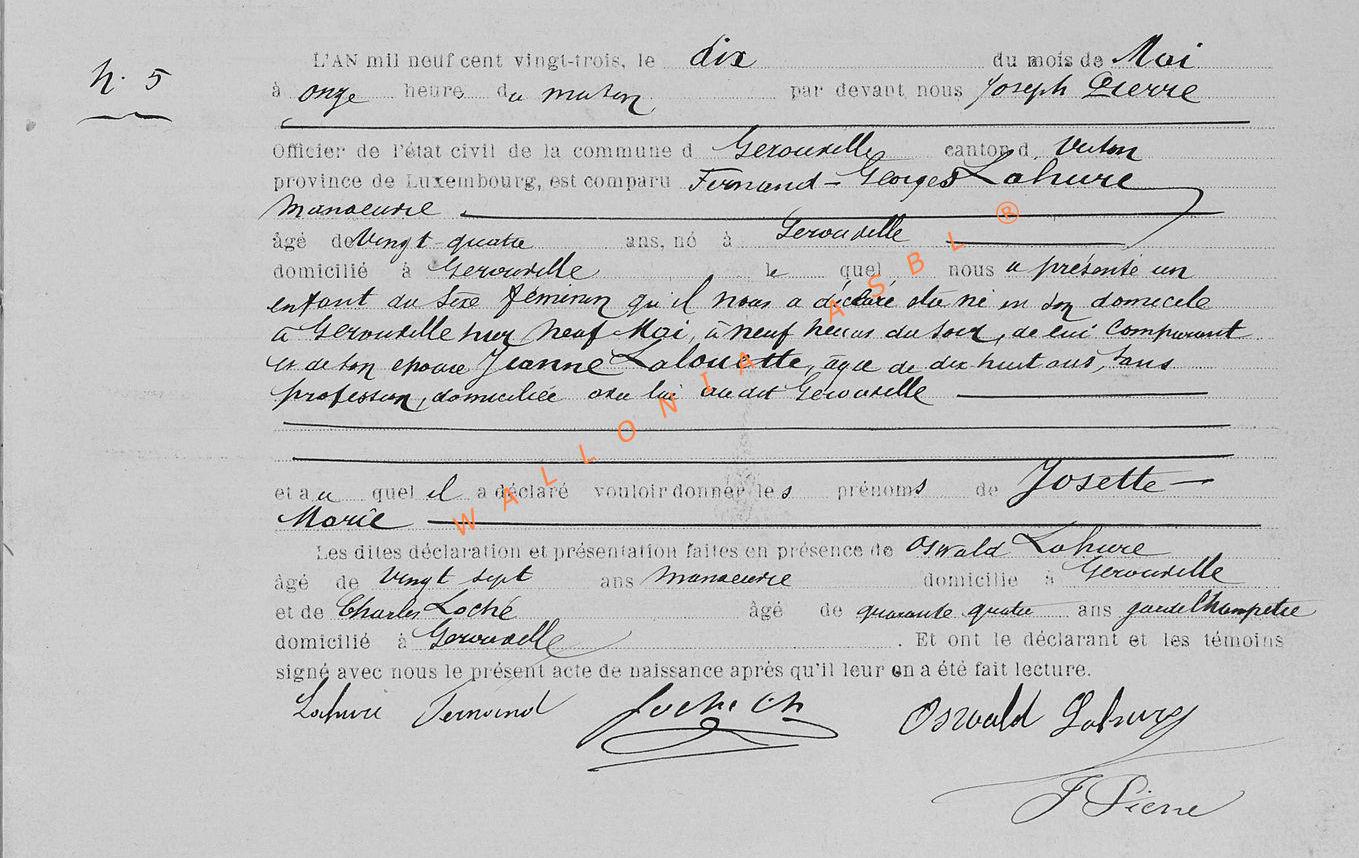 N. 5
L'AN mil neuf cent vingt-trois, le dix du mois de Mai
à onze heures du matin par devant nous Joseph Pierre
Officier de l'état civil de la commune d Gerouville canton d Virton
province de Luxembourg, est comparu Fernand-Georges Lahure
manoeuvre
âgé de vingt-quatre ans, né à Gerouville
domicilié à Gerouville le quel nous a présenté un
enfant du sexe féminin qu'il nous a déclaré être né en son domicile
à Gerouville hier neuf Mai, à neuf heures du soir, de lui comparant
et de son épouse Jeanne Lalouette, agée de dix huit ans, sans
profession, domiciliée avec lui audit Gerouville
et au quel il a déclaré vouloir donner les prénoms de Josette-
Marie
Les dites déclaration et présentation faites en présence de Oswald Lahure
âgé de vingt sept ans manoeuvre domicilié à Gerouville
et de Charles Loché âgé de quarante quatre ans garde Champetre
domicilié à Gerouville. Et ont le déclarant et les témoins
signé avec nous le présent acte de naissance après qu'il leur en a été fait lecture.
Lahure Fernand Loché Ch Oswald Lahure
J Pierre
WALLONIA ASBL ®